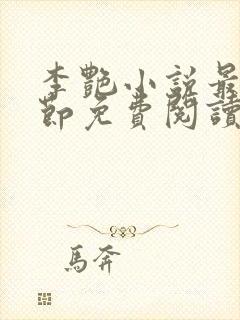 李艷小說最
節免費閱讀
馬奔